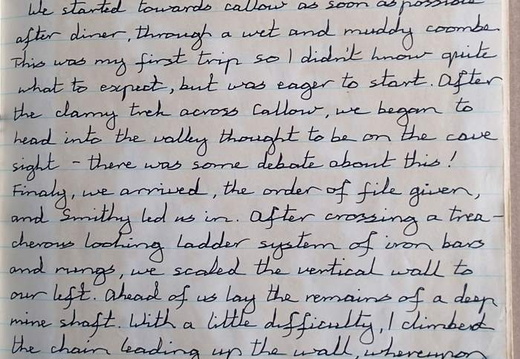 We started towards callow as soon as possible
after diner, through a wet and muddy coombe
This was my first trip so I didn't know quite
what to expect, but was eager to start. After
the clamy trek across Callow, we began to
head into the valley thought to be on the cave
sight - there was some debate about this!
Finaly, we arrived, the order of file given,
and Smithy led us in. After crossing a trea-
cherous looking ladder system of iron bars
and rungs, we scaled the vertical wall to
our left. Ahead of us lay the remains of a deep
mine shaft. With a little difficulty, I climbed
the chain leading up the wall, whereupon